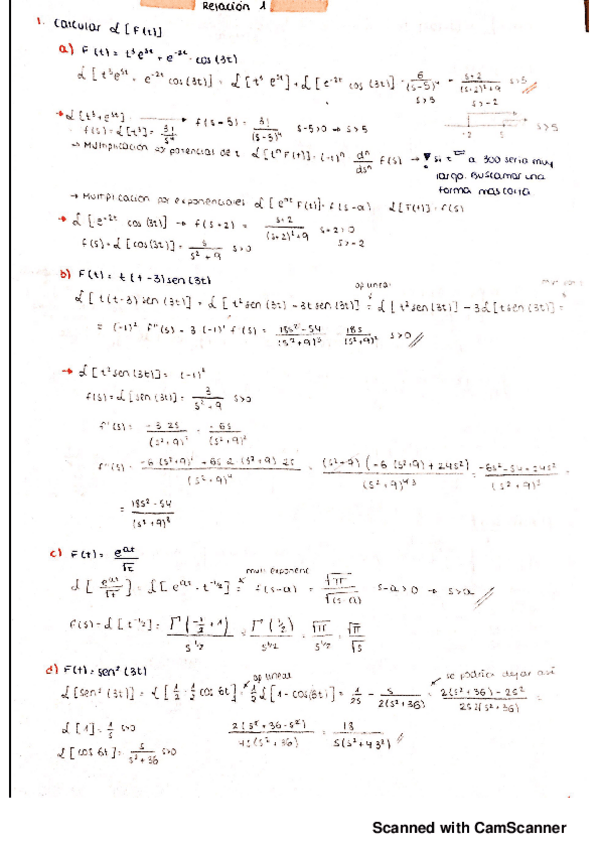 Relación 1
1. Calcular L[F(t)]
a) F(t) = t³e⁵ᵗ + e⁻²ᵗ · cos(3t)
L[t³e⁵ᵗ + e⁻²ᵗ cos(3t)] = L[t³ e⁵ᵗ] + L[e⁻²ᵗ cos(3t)] = 6/(s-5)⁴ + (s+2)/((s+2)²+9) s>5
s>5 s>-2
→ L[t³ · e⁵ᵗ] → f(s-5) = 3!/(s-5)⁴ s-5>0 → s>5
-2 5 s>5
f(s) = L[t³] = 3!/s⁴
→ Multiplicación por potencias de t L[tⁿ F(t)] = (-1)ⁿ dⁿ/dsⁿ f(s) → si t a 300 seria muy
largo. Buscamos una
forma mas corta
→ Multiplicación por exponenciales L[eᵃᵗ F(t)] = f(s-a) L[F(t)] = f(s)
→ L[e⁻²ᵗ cos(3t)] → f(s+2) = (s+2)/((s+2)²+9) s+2>0
s>-2
f(s) = L[cos(3t)] = s/(s²+9) s>0
b) F(t) = t(t-3) sen(3t)
op lineal
L[t(t-3) sen(3t)] = L[t² sen(3t) - 3t sen(3t)] = L[t² sen(3t)] - 3L[t sen(3t)] =
= (-1)² f''(s) - 3(-1)¹ f'(s) = (18s²-54)/(s²+9)³ - 18s/(s²+9)² s>0
→ L[t² sen(3t)] = (-1)²
f(s) = L[sen(3t)] = 3/(s²+9) s>0
f'(s) = -3·2s/(s²+9)² = -6s/(s²+9)²
f''(s) = (-6(s²+9)² + 6s 2(s²+9) 2s)/(s²+9)⁴ = (s²+9)(-6(s²+9)+24s²)/(s²+9)⁴ ³ = (-6s²-54+24s²)/(s²+9)³ =
= (18s²-54)/(s²+9)³
c) F(t) = eᵃᵗ/√t
mult exponenc
L[eᵃᵗ/√t] = L[eᵃᵗ · t^(-1/2)] = f(s-a) = √π/√(s-a) s-a>0 → s>a
f(s) = L[t^(-1/2)] = Γ(-1/2+1)/s^(1/2) = Γ(1/2)/s^(1/2) = √π/s^(1/2) = √π/√s
d) F(t) = sen²(3t)
op lineal
se podria dejar asi
L[sen²(3t)] = L[1/2 - 1/2 cos 6t] = 1/2 L[1-cos(6t)] = 1/2s - s/2(s²+36) = (2(s²+36)-2s²)/2s·2(s²+36) =
L[1] = 1/s s>0
2(s²+36-s²)/4s(s²+36) = 18/s(s²+36)
L[cos 6t] = s/(s²+36) s>0
Scanned with CamScanner